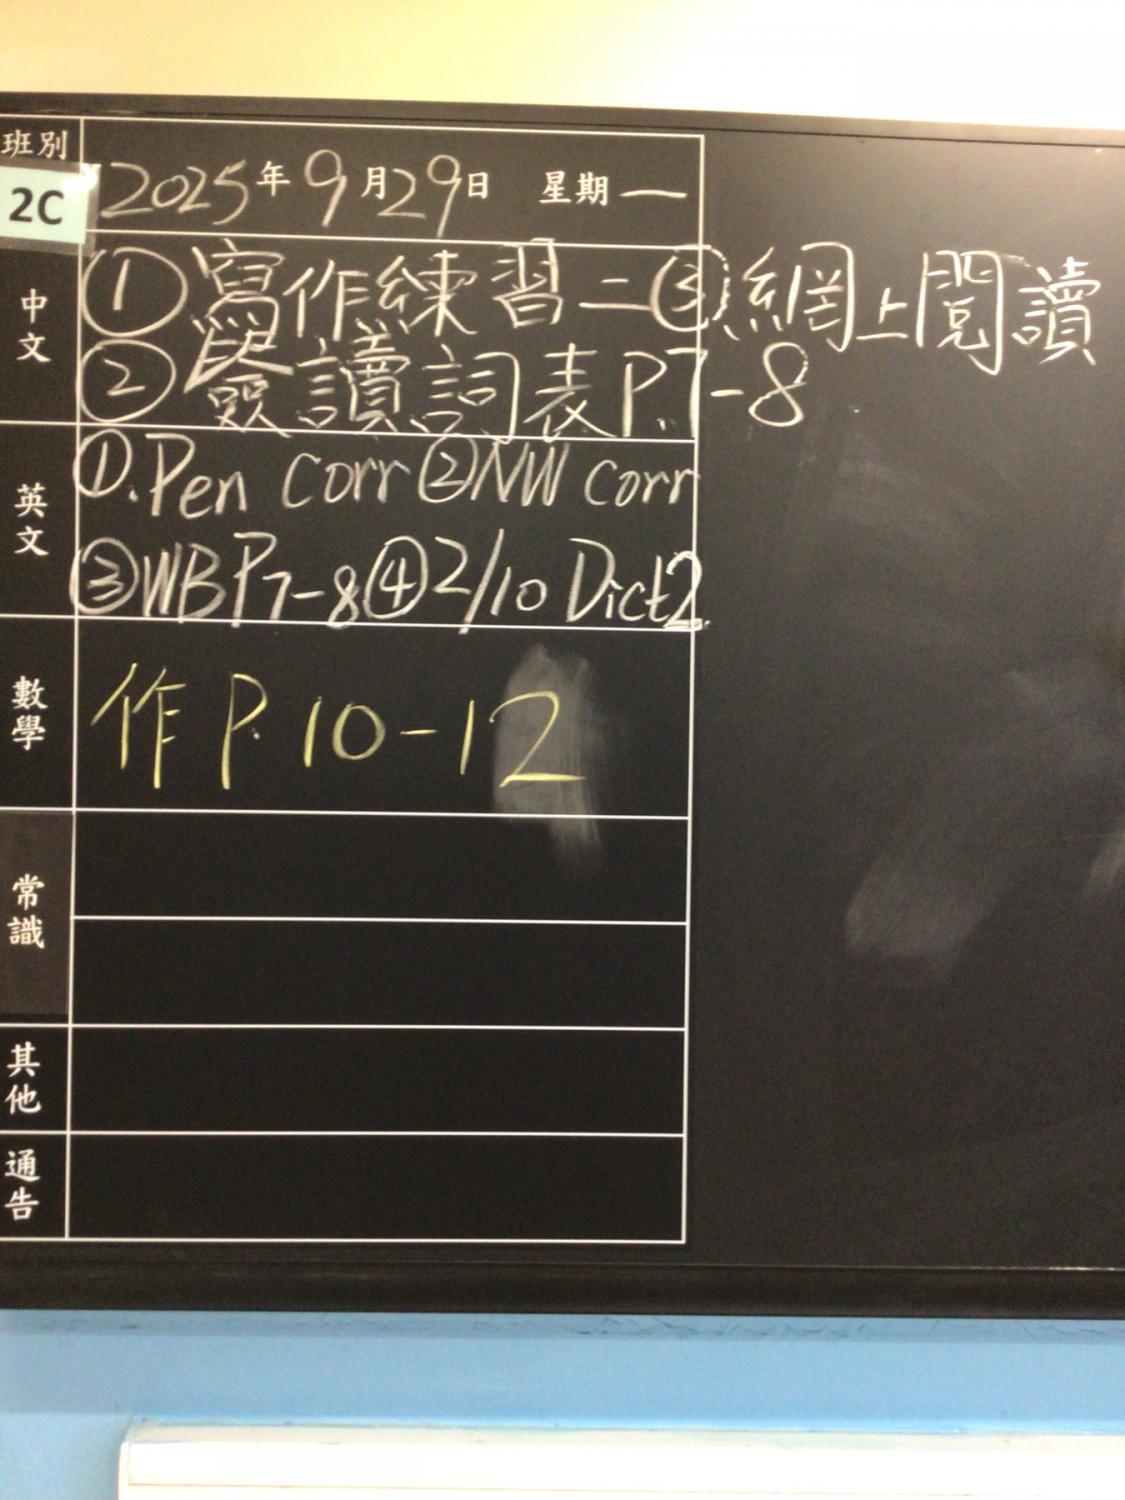 班別
2C
2025年9月29日 星期一
中文
①寫作練習二③網上閱讀
②簽讀詞表P.7-8
英文
①.Pen corr②NW corr
③WB P7-8④2/10 Dict2.
數學
作P.10-12
常識
其他
通告